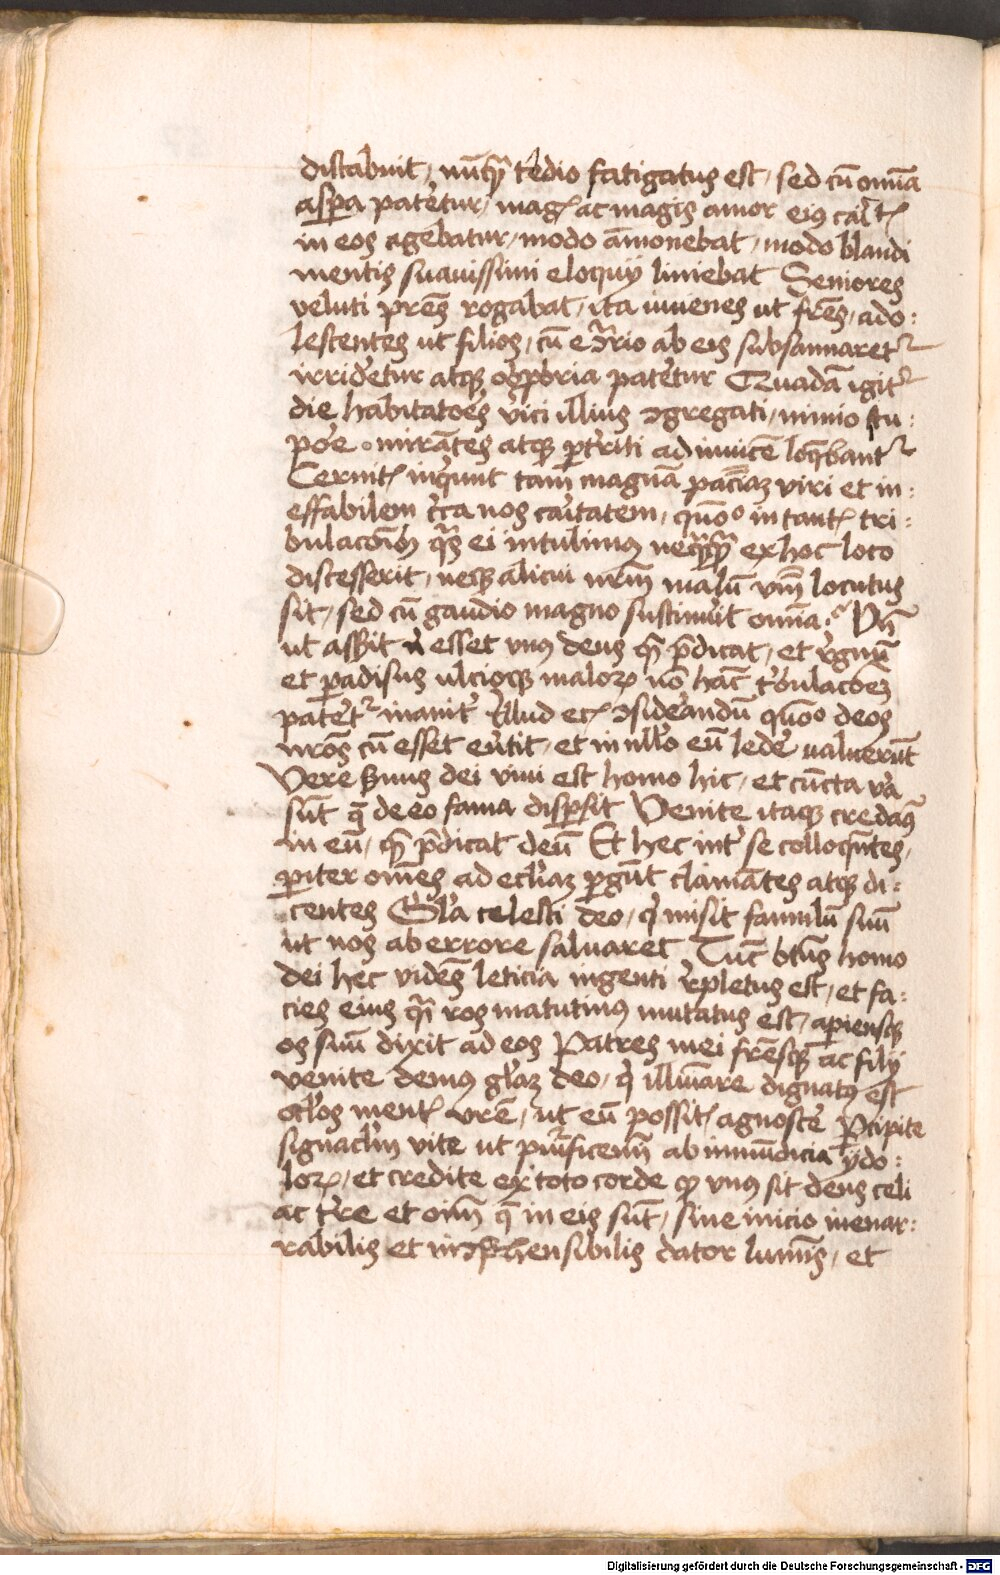 distabuit, nūq̄ʒ tedio fatigatus est, sed cū omīa
aspa pateretur, magꝭ ac magis amor eiꝯ caritꝭ
in eos agebatur, modo āmonebat, modo blandi
mentis suauissimi eloquij liniebat Seniores
veluti pres̄ rogabat, ita iuuenes ut fr̄es, ado:
lescentes ut filios, cū eꝯrio ab eis subsannaretᷣ
irrideretur atqꝫ obꝓbria pateretur Quadā igitᷣ
die habitatoēs vici illius ꝯgregati, nimio stu:
pore mirātes atqꝫ ꝑterriti adinuicē loqbantᷣ
Cernitꝭ inquiunt tam magnā paciam viri et in:
effabilem circa nos caritatem, quō in tantꝭ tri:
bulaconibꝫ quas ei intulimꝯ neqq̄ʒ ex hoc loco
discesserit, neqꝫ alicui nr̄m malū vm̄ locutus
sit, sed cū gaudio magno sustinuit omīa. Vn̄
ut asserit nisi esset vnꝯ deus quē p̄dicat, et regnū
et ꝑadisus ulcioqꝫ maloꝝ nō hāc tribulacoēs
pateretᷣ inaniter Illud eciā ꝯsiderandū quō deos
nros̄ cū esset euertit, et in nullo eū ledere ualuerūt
Vere seruus dei viui est homo hic, et cūcta vera
sūt que de eo fama dispersit Venite itaqꝫ credamꝯ
in eū, quē p̄dicat deū Et hec inter se colloquētes,
ꝑiter omēs ad eccliaz ꝑgūt clamātes atqꝫ di:
centes Glīa celesti deo, qui misit famulū suū
ut nos ab errore saluaret Tūc btūs homo
dei hec vidēs leticia ingenti repletus est, et fa:
cies eius quasi ros matutinꝯ mutatus est, apiensqꝫ
os suū dixit ad eos Patres mei fr̄esqꝫ ac filij
venite demꝯ glīaz deo, qui illuminare dignatꝯ est
oclos mentꝭ vrē, ut eū possitꝭ agnoscere Percipite
signaclm vite ut purificemini ab inmūdicia ydo:
loꝝ, et credite ex toto corde qꝫ vnꝯ sit deus celi
ac terre et oim̄ que in eis sūt, sine inicio inenar:
rabilis et inꝯprehensibilis dator luminis, et
Digitalisierung gefördert durch die Deutsche Forschungsgemeinschaft - DFG